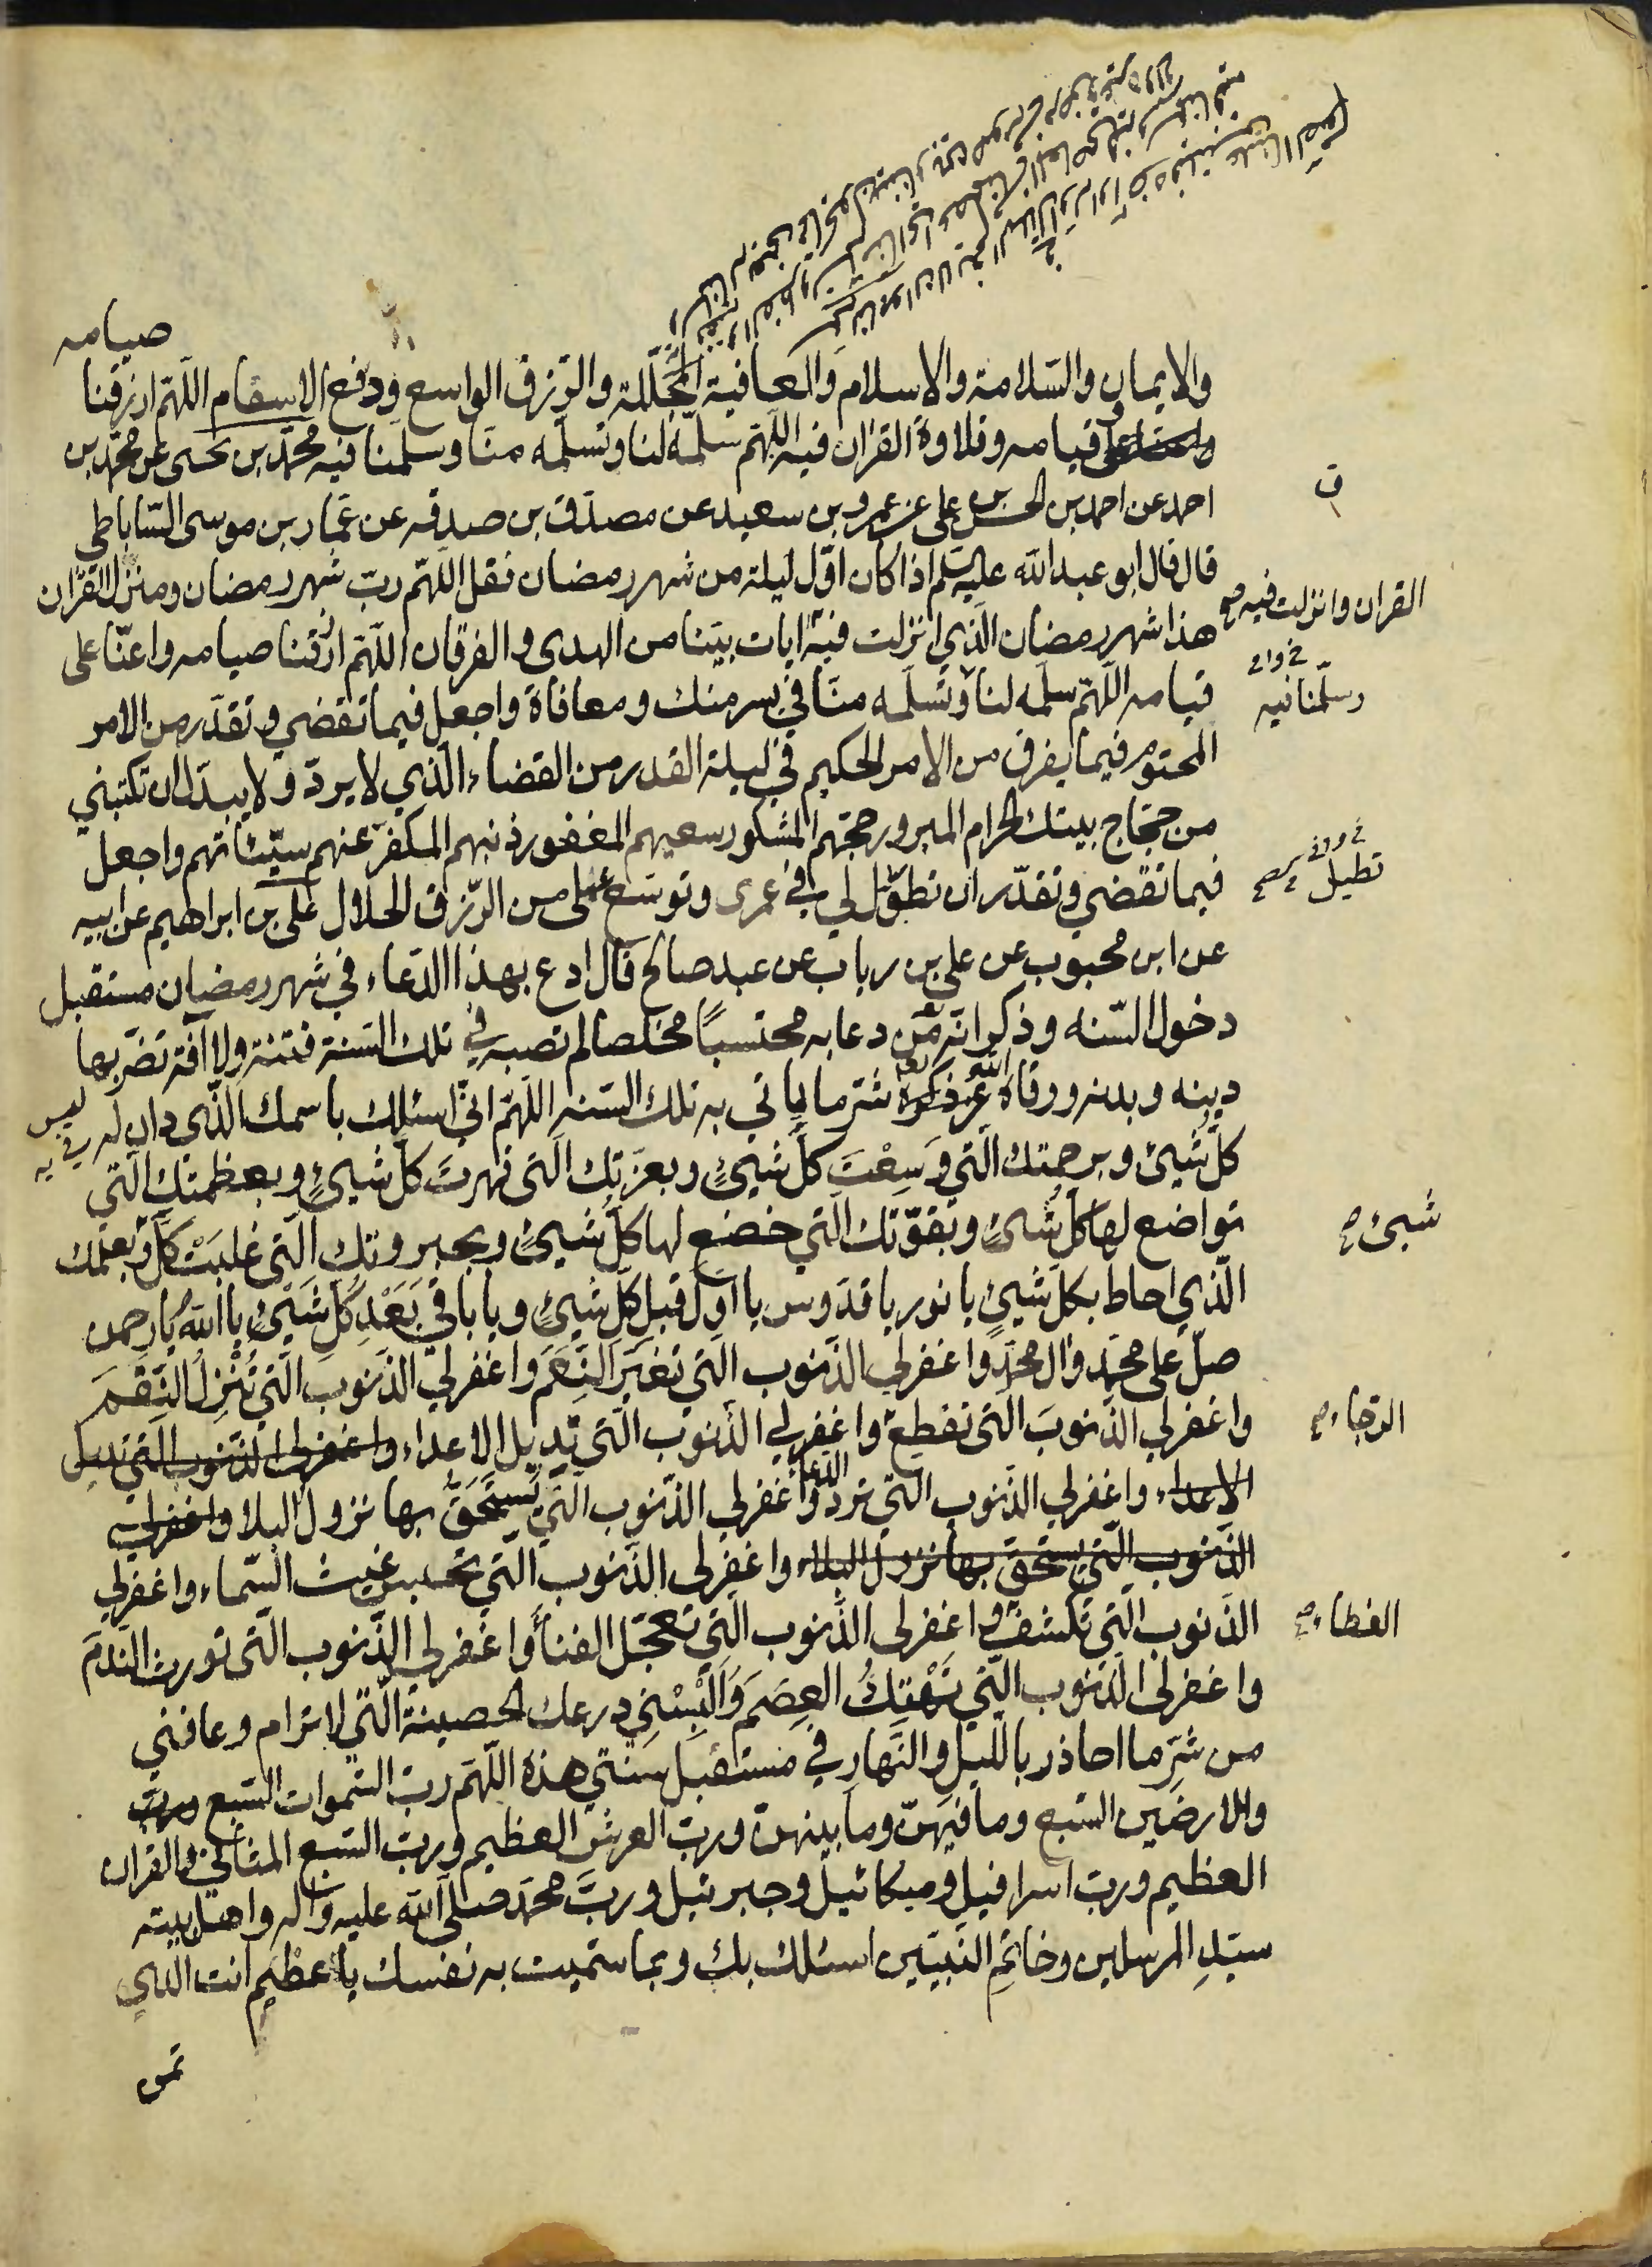 صيامه
والايمان والسّلامة والاسلام والعافية المجلّلة والرّزق الواسع ودفع الاسقام اللّهمّ ارزقنا
قيامه وتلاوة القران فيه اللّهمّ سلّمه لنا وتسلّمه منّا وسلّمنا فيه محمّد بن يحيى عن محمّد بن
احمد عن احمد بن الحسن بن على عن عمرو بن سعيد عن مصدّق بن صدقه عن عمّار بن موسى السّاباطي
قال قال ابو عبد الله عليه السلم اذا كان اوّل ليلة من شهر رمضان فقل اللّهمّ ربّ شهر رمضان ومنزل القران
القران وانزلت فيه صح
هذا شهر رمضان الّذي انزلت فيه ايات بيّنا من الهدى والفرقان اللّهمّ ارزقنا صيامه واعنّا على
وسلّمنا فيه
قيامه اللّهمّ سلّمه لنا وتسلّمه منّا في يسر منك ومعافاة واجعل فيما تقضي وتقدّر من الامر
المحتوم فيما يفرق من الامر الحكيم في ليلة القدر من القضاء الّذي لا يردّ ولا يبدّل ان تكتبني
من حجّاج بيتك الحرام المبرور حجّهم المشكور سعيهم المغفور ذنبهم المكفّر عنهم سيّئاتهم واجعل
تطيل
فيما تقضي وتقدّر ان تطوّل لي في عمرى وتوسّع على من الرّزق الحلال على بن ابراهيم عن ابيه
عن ابن محبوب عن على بن رباب عن عبد صالح قال ادع بهذا الدّعاء في شهر رمضان مستقبل
دخول السّنه وذكر انّه من دعا به محتسباً مخلصا لم تصبه في تلك السّنة فتنة ولا آفة تضرّ بها
دينه وبدنه ووقاه الله عزّ ذكره شرّ ما ياتي به تلك السّنه اللّهمّ انّي اسئلك باسمك الّذي دان له
كلّ شيئ وبرحمتك الّتي وَسِعْتَ كلّ شيئٍ وبعزّتك الّتي قهرت كلّ شيئٍ وبعظمتك الّتي
شيئ صح
تواضع لها كلّ شيئ وبقوّتك الّتي خضع لها كلّ شيئٍ وبجبروتك الّتي غلبَتْ كلّ وبعلمك
الّذي احاط بكلّ شيئٍ يا نور يا قدّوس يا اوّل قبل كلّ شيئٍ ويا باقي بَعْدِ كلّ شَيْئٍ يا اللهُ يا رحمن
صلّ على محمّد وال محمّد واغفر لي الذّنوب الّتي تغيّر النِّعَم واغفر لي الذّنوب الّتي تُنْزِلُ النّقَمَ
الرّجاء صح
واغفر لي الذّنوبَ الّتي تقطع واغفر لي الذّنوب الّتي تديل الاعداء واغفر لي الذّنوب الّتي تديل
الاعداء واغفر لي الذّنوب الّتي تردّ الدّعا واغفر لي الذّنوب الّتي يُسْتَحَقُّ بها نزول البلا واغفر لي
الذّنوب الّتي يستحقّ بها نزول البلاء واغفر لى الذّنوب الّتي تحبس غيث السّماء واغفر لي
الغطاء صح
الذّنوب الّتي تكشف واغفر لى الذّنوب الّتي تعجّل الفناء واغفر لي الذّنوب الّتي تورث النّدمَ
واغفر لى الذّنوب الّتي تَهْتِكُ العِصَمَ وَاَلْبِسْنِي درعك الحصينة الّتي لا ترام وعافني
من شرّ ما احاذر باللّيل والنّهارِ في مستقبل سنتي هذه اللّهمّ ربّ السّموات السّبع وربّ
والارضين السّبع وما فيهنّ وما بينهنّ وربّ العرش العظيم وربّ السّبع المثاني والقران
العظيم وربّ اسرافيل وميكائيل وجبرئيل وربّ محمّد صلى الله عليه واله واهل بيته
سيّدِ المرسلين وخاتمِ النّبيّين اسئلك بك وبما سمّيت به نفسك يا عظيم انت الّذي
تمن